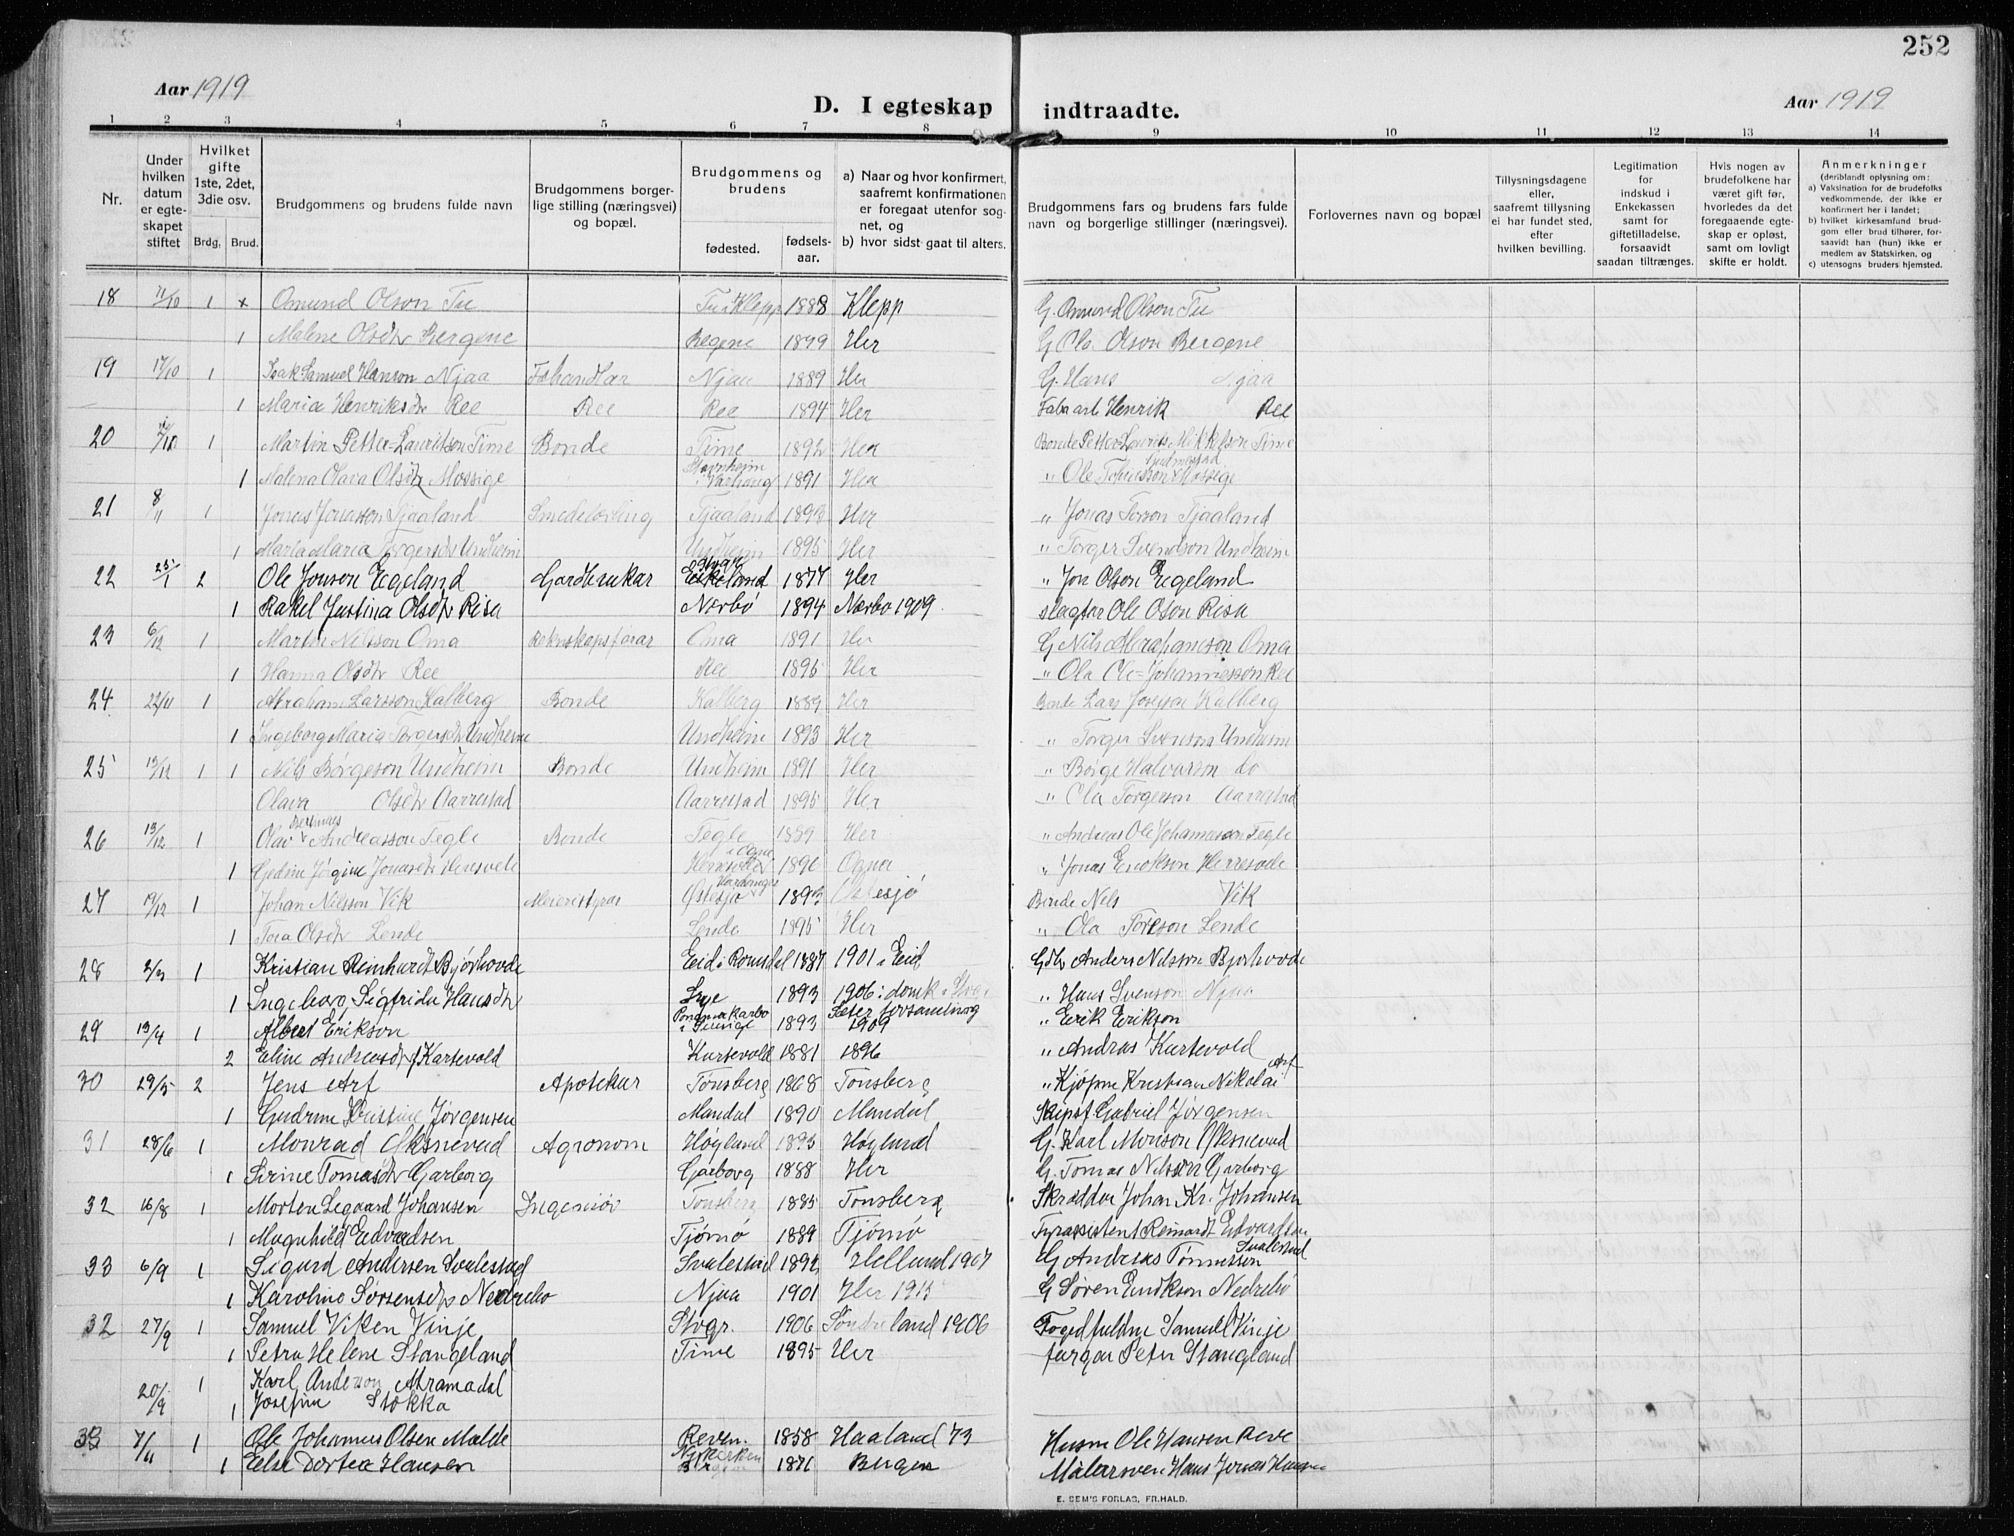 252
Aar 1919
D. I egteskap indtraadte.
Aar 1919
1 2 3 4 5 6 7 8 9 10 11 12 13 14
Nr.
Under hvilken datum er egteskapet stiftet
Hvilket gifte 1ste, 2det, 3die osv.
Brdg. Brud.
Brudgommens og brudens fulde navn
Brudgommens borgerlige stilling (næringsvei) og bopæl.
Brudgommens og brudens
fødested.
fødselsaar.
a) Naar og hvor konfirmert, saafremt konfirmationen er foregaat utenfor sognet, og
b) hvor sidst gaat til alters.
Brudgommens fars og brudens fars fulde navn og borgerlige stillinger (næringsvei).
Forlovernes navn og bopæl
Tillysningsdagene eller, saafremt tillysning ei har fundet sted, efter hvilken bevilling.
Legitimation for indskud i Enkekassen samt for giftetilladelse, forsaavidt saadan tiltrænges.
Hvis nogen av brudefolkene har været gift før, hvorledes da det foregaaende egteskap er opløst, samt om lovligt skifte er holdt.
Anmerkninger (deriblandt oplysning om:
a) Vaksination for de brudefolks vedkommende, der ikke er konfirmert her i landet;
b) hvilket kirkesamfund brudgom eller brud tilhører, forsaavidt han (hun) ikke er medlem av Statskirken, og
c) utensogns bruders hjemsted.
18 11/10 1 x Omund Olson Tu Tu i Klepp 1888 Klepp G. Omund Olson Tu
1 Malene Olsdtr Bergene Begene 1899 Her G Ola Olson Bergene
19 17/10 1 Isak Samuel Hanson Njaa Fehandlar Njaa 1889 Her G. Hans Njaa
1 Maria Henriksdtr Ree Ree Ree 1894 Her Henrik Ree
20 /10 1 Martin Petter Lauritson Time Bonde Time 1892 Her Bonde Petter Laurits Mikkelson Time
1 Malena Olava Olsdtr Mossige i Varhaug 1891 Her " Ole Mossige
21 8/11 1 Jonas Jonasson Tjaaland Smedelærling Tjaaland 1893 Her " Jonas Torson Tjaaland
1 Marta Maria Torgersdtr Undheim Undheim 1895 Her " Torger Svendson Undheim
22 25/1 2 Ole Jonson Egeland Gardbrukar Eikeland 1877 Her " Jon Olson Egeland
1 Rakel Justina Olsdtr Risa Nærbø 1894 Nærbo 1909. slagtar Ole Olson Risa
23 6/12 1 Martin Nilsson Oma Rekneskapsførar Oma 1891 Her G Nils Abrahamson Oma
1 Hanna Olsdtr Ree Ree 1895 Her " Ola Ole-Johannesson Ree
24 22/11 1 Abraham Larsson Kalberg Bonde Kalberg 1889 Her Bonde Lars Josefson Kalberg
1 Ingeborg Maria Torgersdtr Undheim Undheim 1893 Her " Torger Svenson Undheim
25 13/12 1 1 Nils Børgeson Undheim Bonde Undheim 1891 Her " Børge Halvorson do
Olava Olsdtr Aarrestad Aarrestad 1895 Her " Ola Torgerson Aarrestad
26 13/12 1 Olav Andreasson Tegle Bonde Tegle 1889 Her " Andreas Ole Johannesson Tegle
1 Gudine Jørgine Jonasdtr Herrsvele i Ogna 1896 Ogna " Jonas Erikson Herresvele
27 19/12 1 Johan Nilsson Vik Meieristyrar Østesjø Hardanger 1893 Østesjø Bonde Nils Vik
1 Tora Olsdtr Lende Lende 1895 Her " Ola Toreson Lende
28 2/3 1 Kristian Reinhardt Bjørhovde Eid i Romsdal 1887 1901 i Eid Gbr Anders Nilsson Bjørhovde
1 Ingeborg Sigfrida Hansdtr 1893 1906 i domk i Stv. " Hans Svenson Njaa
29 13/4 1 Albert Erikson 1893 1909 " Erik Erikson
2 Eline Andreasdtr f Kartevold Kartevold 1881 1896 " Andras Kartevold
30 29/5 2 Jens Arf Apotekar Tønsberg 1868 Tønsberg " Kjøpm Kristian Nikolai Arf
1 Gudrun Kristine Jørgensen Mandal 1890 Mandal Skipsf Gabriel Jørgensen
31 28/6 1 Monrad Øksnevad Agronom Høyland 1895 Høyland G. Karl Monson Øksnevad
1 Serine Tomasdtr Garborg Garborg 1888 Her G. Tomas Nilsson Garborg
32 16/8 1 Morten Legaard Johansen Ingeniør Tønsberg 1885 Tønsberg Skrædder Johan Kr. Johansen
1 Magnhild Edvardsen Tjømø 1889 Tjømø Fyrassistent Reinardt Edvardsen
33 6/9 1 Sigurd Andersen Svalestad Svalestad 1892 Helland 1907 G Andreas Tønnessen Svalestad
1 Karoline Sørensdtr Nedrebø Njaa 1901 Her 1915 G Søren Eriksson Nedrebø
32 27/9 1 Samuel Viken Vinje Stvgr. 1906 Søndeland 1906 Fogedfuldm Samuel Vinje
1 Petra Helene Stangeland Time 1895 Her fargar Peter Stangland
20/9 1 Karl Anderson Abramadal
1 Josefine Stokka
33 7/11 1 Ole Johannes Olsen Malde Reven. 1858 Haaland 73 Husm Ole Hansen Reve
1 Else Dortea Hansen Nykirken 1871 Bergen Målarsven Hans Jonas Hansen
E. SEM'S FORLAG, FR.HALD.